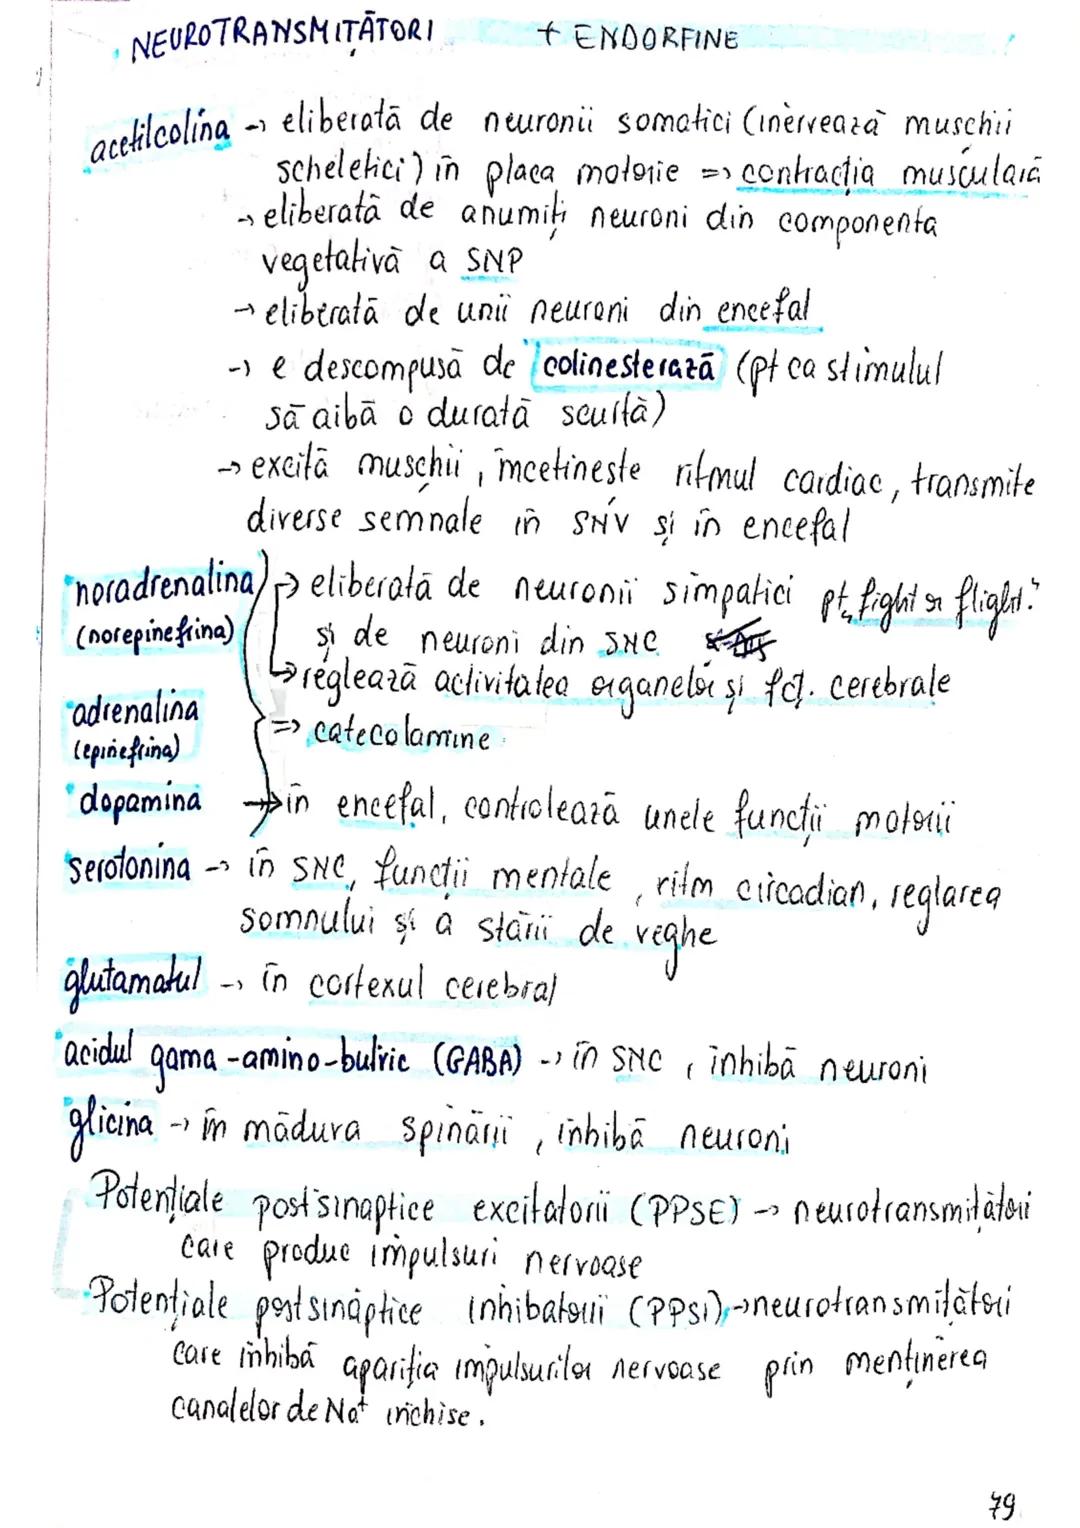 NEUROTRANSMIȚĂTORI + ENDORFINE
acetilcolina → eliberată de neuronii somatici (inervează mușchii
scheletici) în placa motorie => contracția musculară
→ eliberată de anumiți neuroni din componenta
vegetativă a SNP
→ eliberată de unii neuroni din encefal
→ e descompusă de colinesterază (pt ca stimulul
să aibă o durată scurtă)
→ excită mușchii, încetinește ritmul cardiac, transmite
diverse semnale în SNV și în encefal
noradrenalina → eliberată de neuronii simpatici pt "fight or flight"
(norepinefrina) și de neuroni din SNC
→ reglează activitatea organelor și fcț. cerebrale
adrenalina
(epinefrina) => catecolamine
dopamina → în encefal, controlează unele funcții motorii
serotonina → în SNC, funcții mentale, ritm circadian, reglarea
somnului și a stării de veghe
glutamatul → în cortexul cerebral
acidul gama-amino-butiric (GABA) → în SNC, inhibă neuroni
glicina → în mădura spinării, inhibă neuroni
Potențiale postsinaptice excitatorii (PPSE) → neurotransmițători
care produc impulsuri nervoase
Potențiale postsinaptice inhibatorii (PPSi) → neurotransmițători
care inhibă apariția impulsurilor nervoase prin menținerea
canalelor de Na+ închise.
79